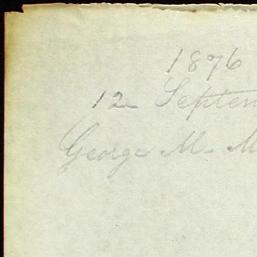 1876
12 Septem
George M. M